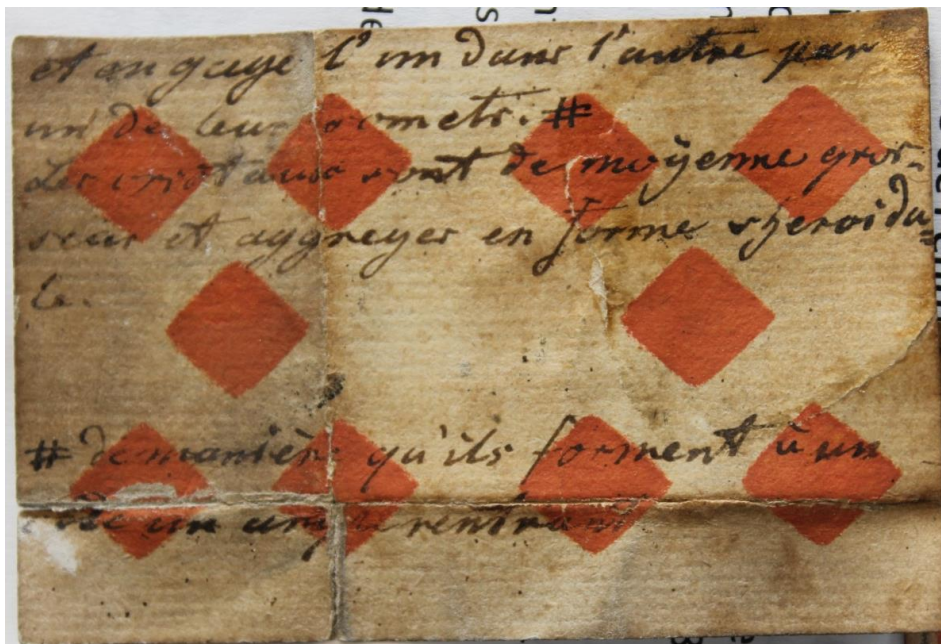 et engagé l'un dans l'autre par
un de leur somets. #
Les cristaux sont de moÿenne gros-
seur et aggreges en forme spheroida=
le.
# de manière qu'ils forment à un
un angle rentrant